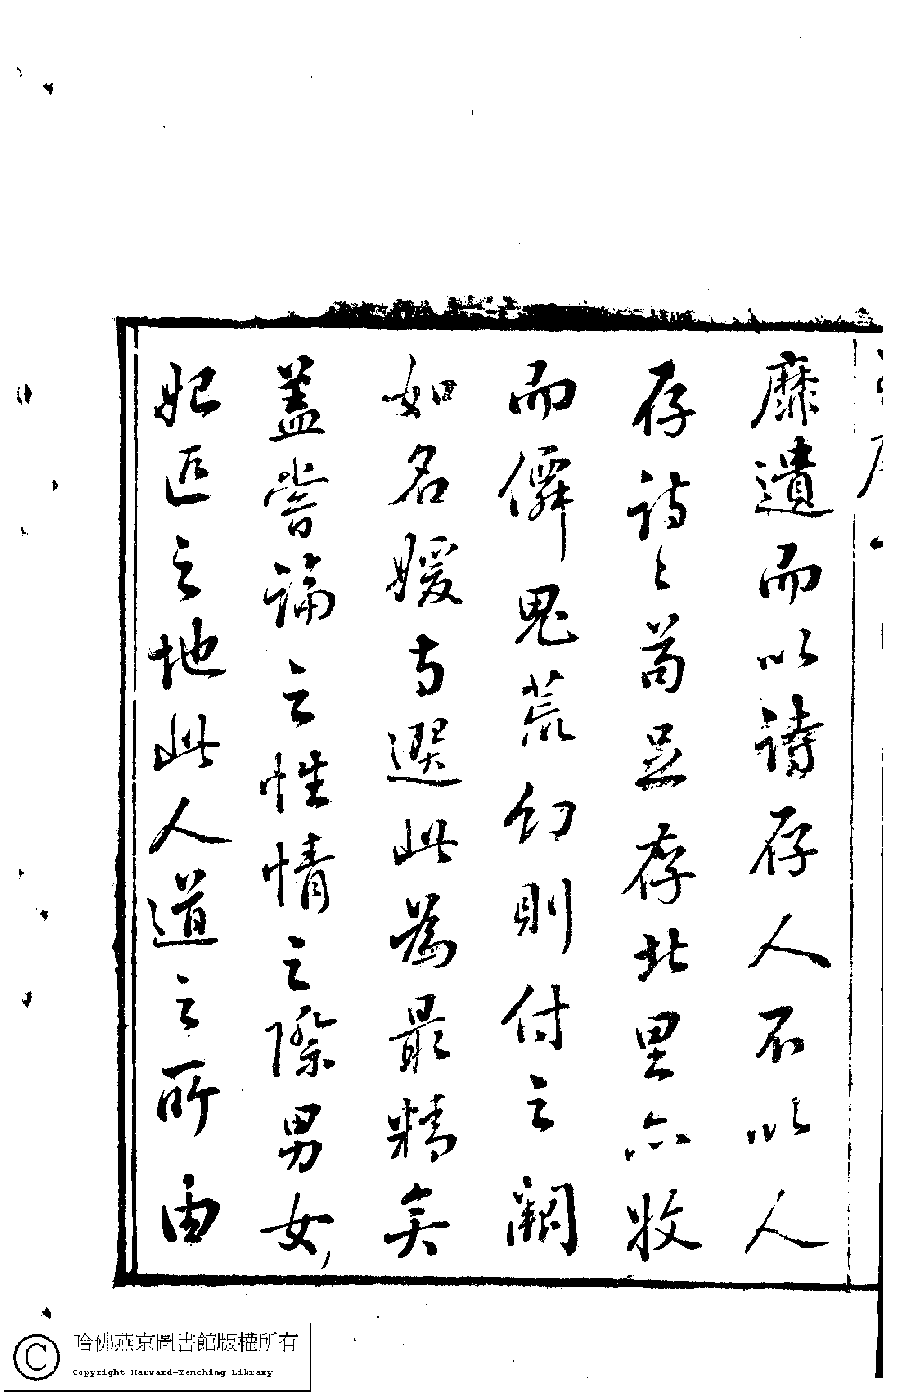 靡遺而以詩存人不以人
存詩〻苟足存北里亦收
而僻鬼荒幻則付之闕
如名媛專選此為最精矣
蓋嘗論之性情之際男女
妃匹之地此人道之所由
哈佛燕京圖書館版權所有
Copyright Harvard-Yenching Library